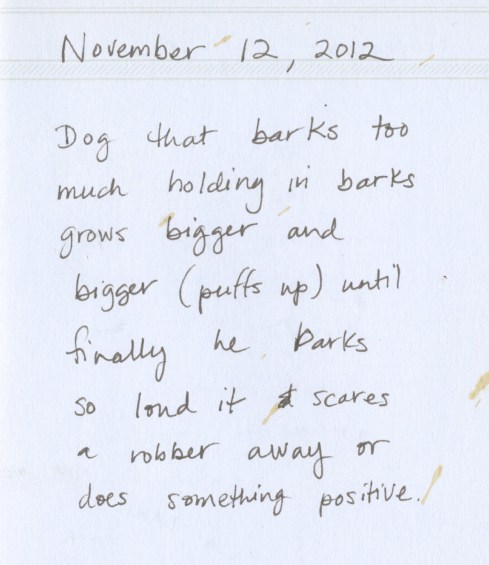 November 12, 2012
Dog that barks too
much holding in barks
grows bigger and
bigger (puffs up) until
finally he barks
so loud it scares
a robber away or
does something positive.